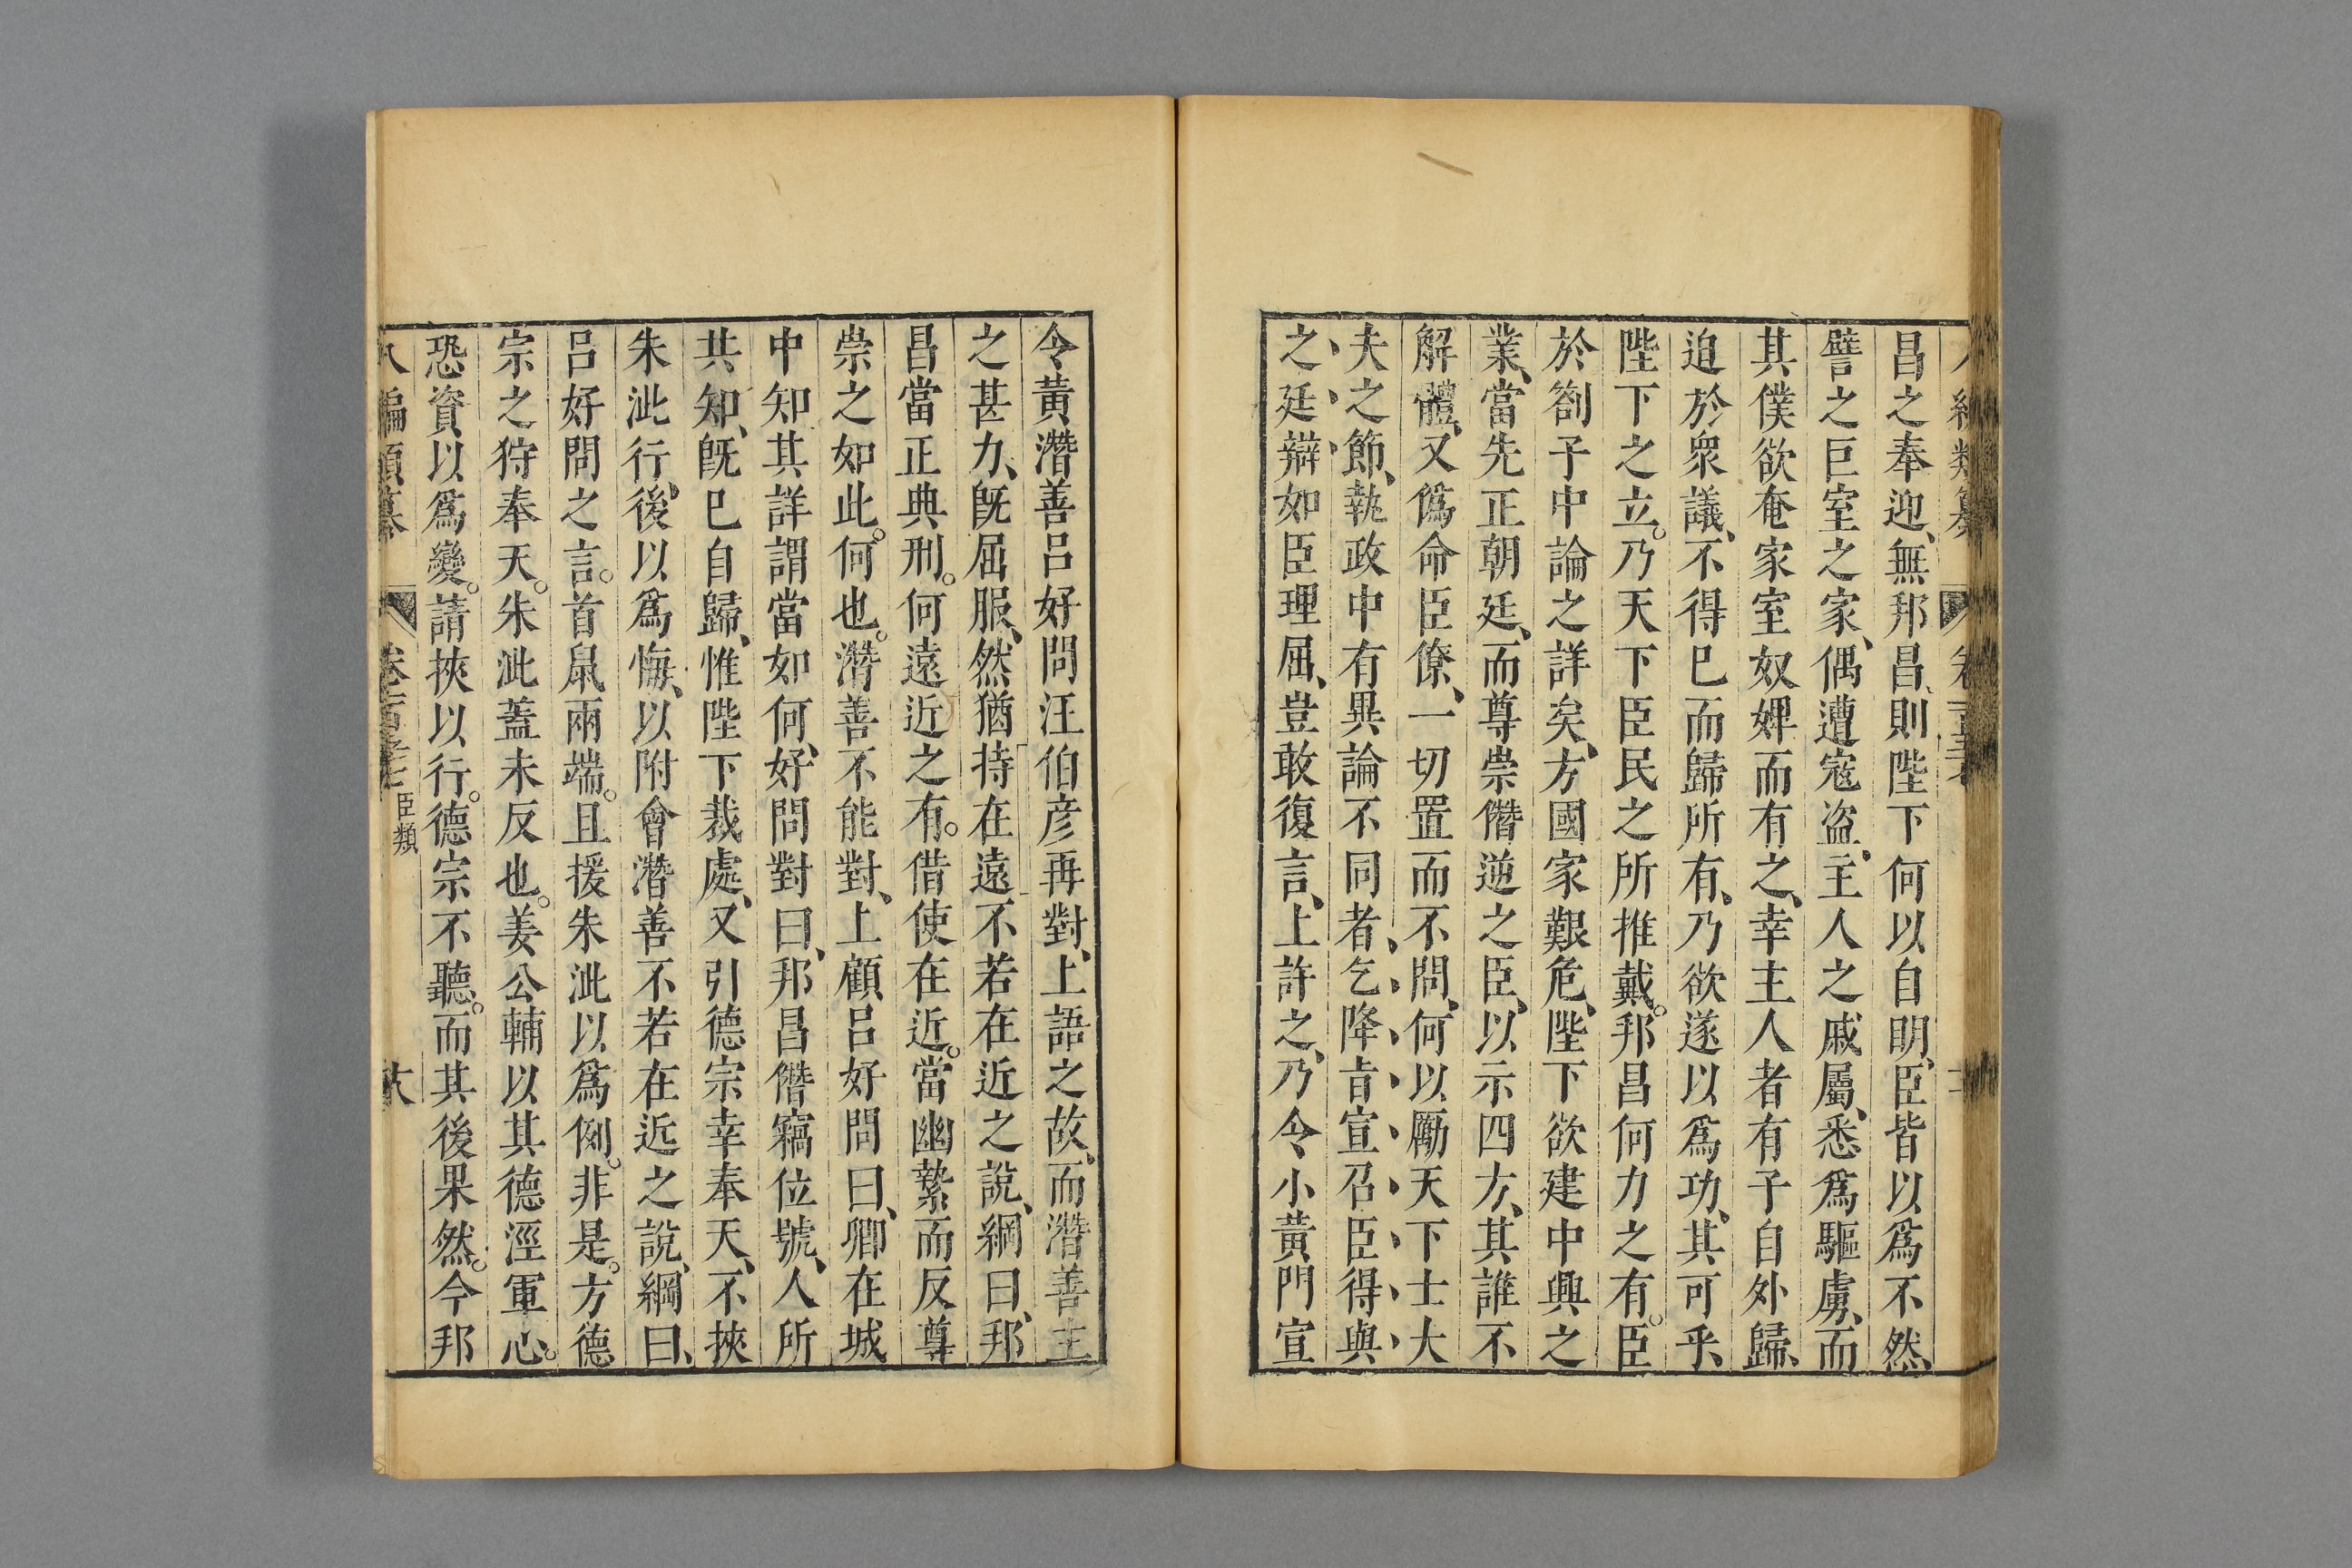 昌之奉迎、無邦昌、則陛下何以自明、臣皆以爲不然、
譬之巨室之家、偶遭寇盗、主人之戚屬、悉爲驅虜、而
其僕欲奄家室奴婢而有之、幸主人者有子自外歸、
迫於衆議、不得已而歸所有、乃欲遂以爲功、其可乎、
陛下之立。乃天下臣民之所推戴。邦昌何力之有。臣
於劄子中論之詳矣、方國家艱危、陛下欲建中興之
業、當先正朝廷、而尊崇僭逆之臣、以示四方、其誰不
解體、又僞命臣僚、一切置而不問、何以勵天下士大
夫之節、執政中有異論不同者、乞降旨宣召臣得與
之廷辯如臣理屈、豈敢復言、上許之、乃令小黃門宣
令黃潛善呂好問汪伯彦再對、上語之故、而潛善主
之甚力、旣屈服、然猶持在遠不若在近之說、綱曰、邦
昌當正典刑。何遠近之有。借使在近。當幽縶而反尊
崇之如此。何也。潛善不能對、上顧呂好問曰、卿在城
中知其詳謂當如何、好問對曰、邦昌僭竊位號、人所
共知、旣已自歸、惟陛下裁處、又引德宗幸奉天、不挾
朱泚行、後以爲悔、以附會潛善不若在近之說、綱曰、
呂好問之言。首鼠兩端。且援朱泚以爲例。非是。方德
宗之狩奉天。朱泚蓋未反也。姜公輔以其德涇軍心。
恐資以爲變。請挾以行。德宗不聽。而其後果然。今邦
八編類纂 臣類